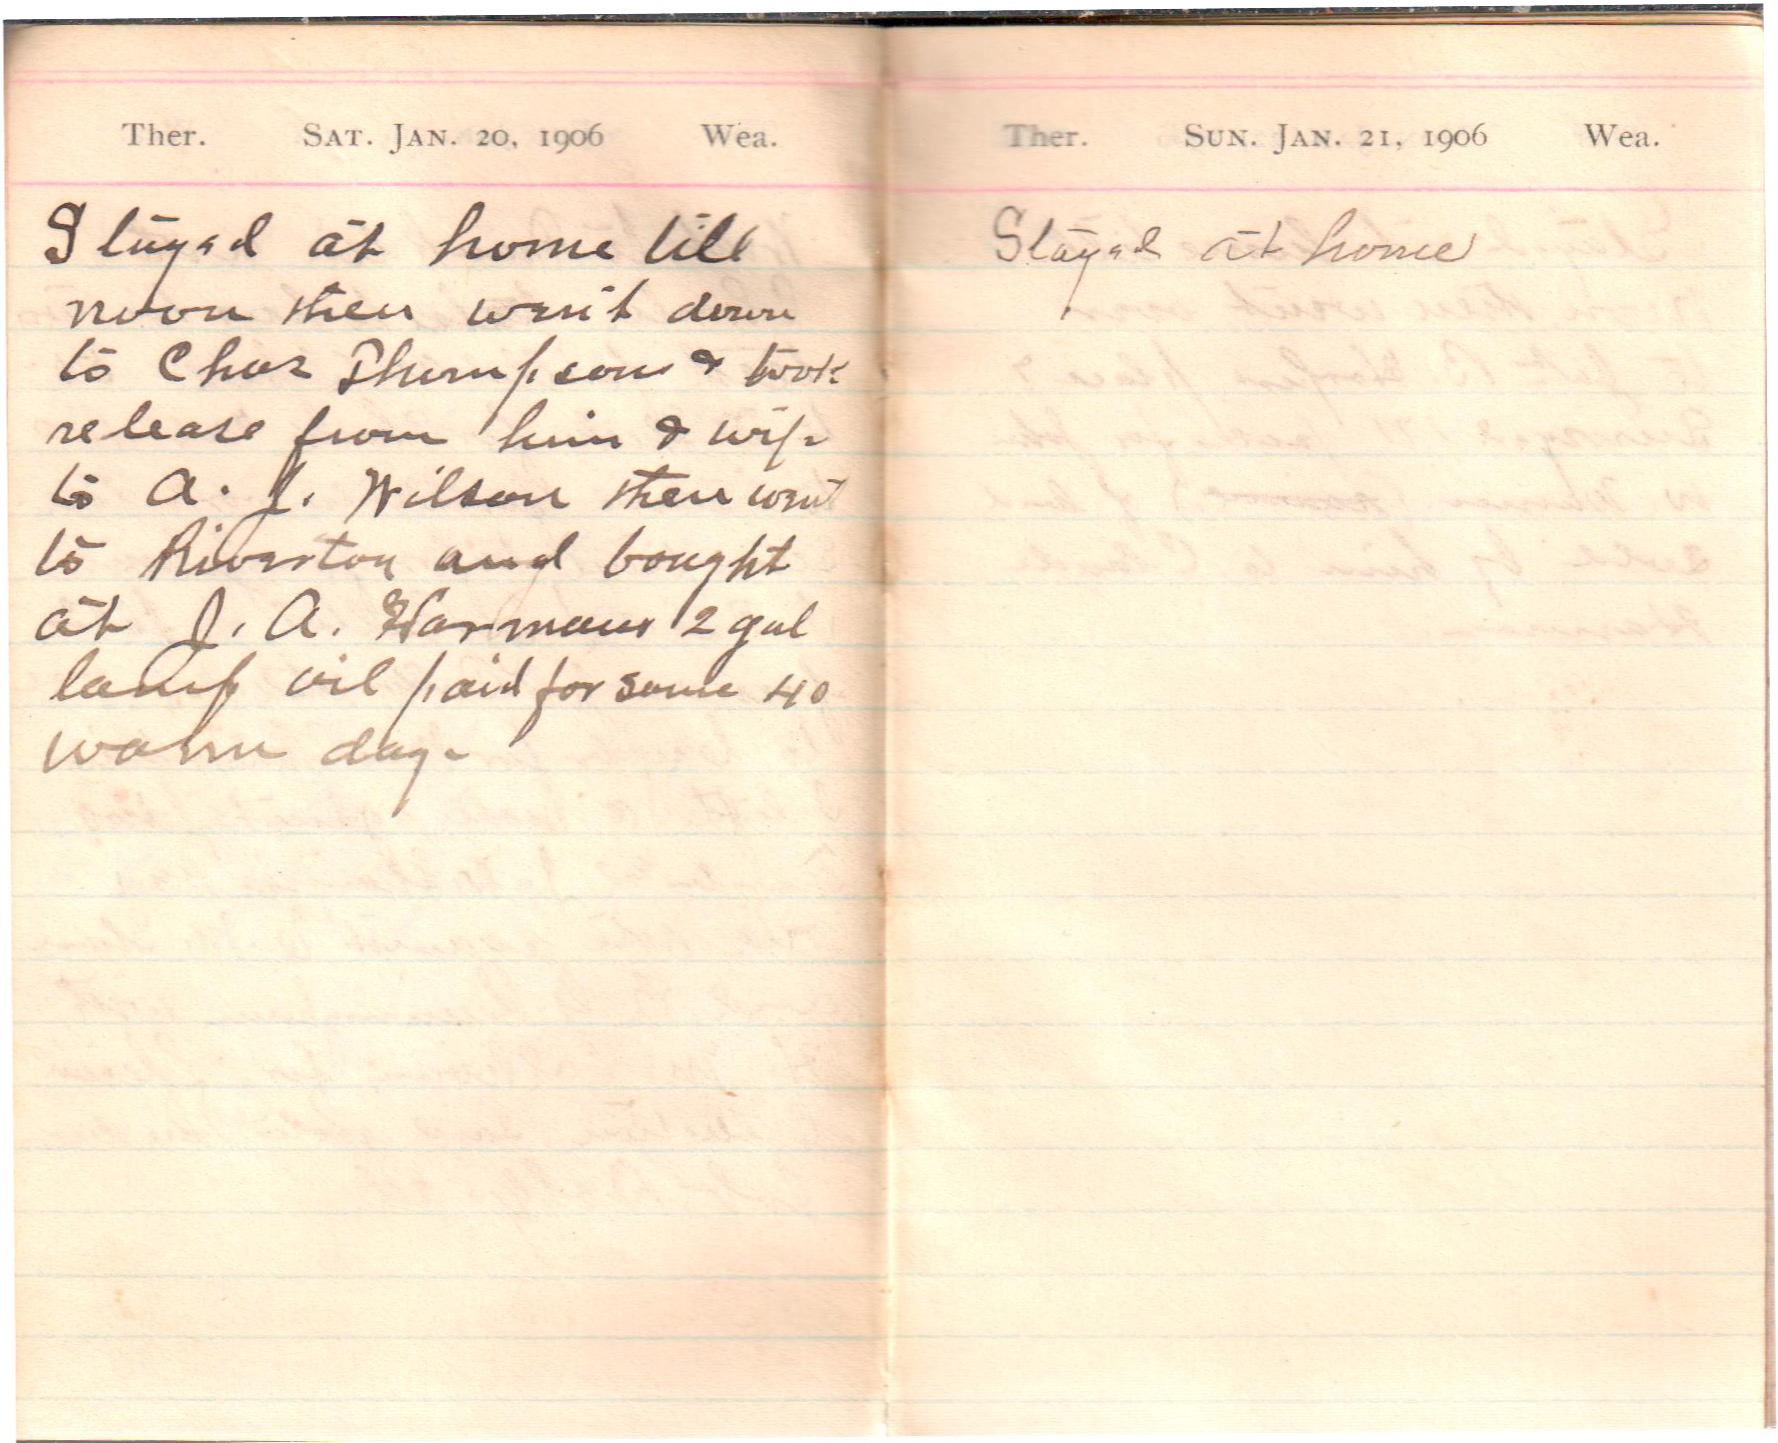 Ther. Sat. Jan. 20, 1906 Wea.
Stayed at home till
noon then went down
to Chas Thompsons & took
release from him & wife
to A. J. Wilson then went
to Riverton and bought
at J. A. Harmans 2 gal
lamp oil paid for same 40
warm day.
Ther. Sun. Jan. 21, 1906 Wea.
Stayed at home